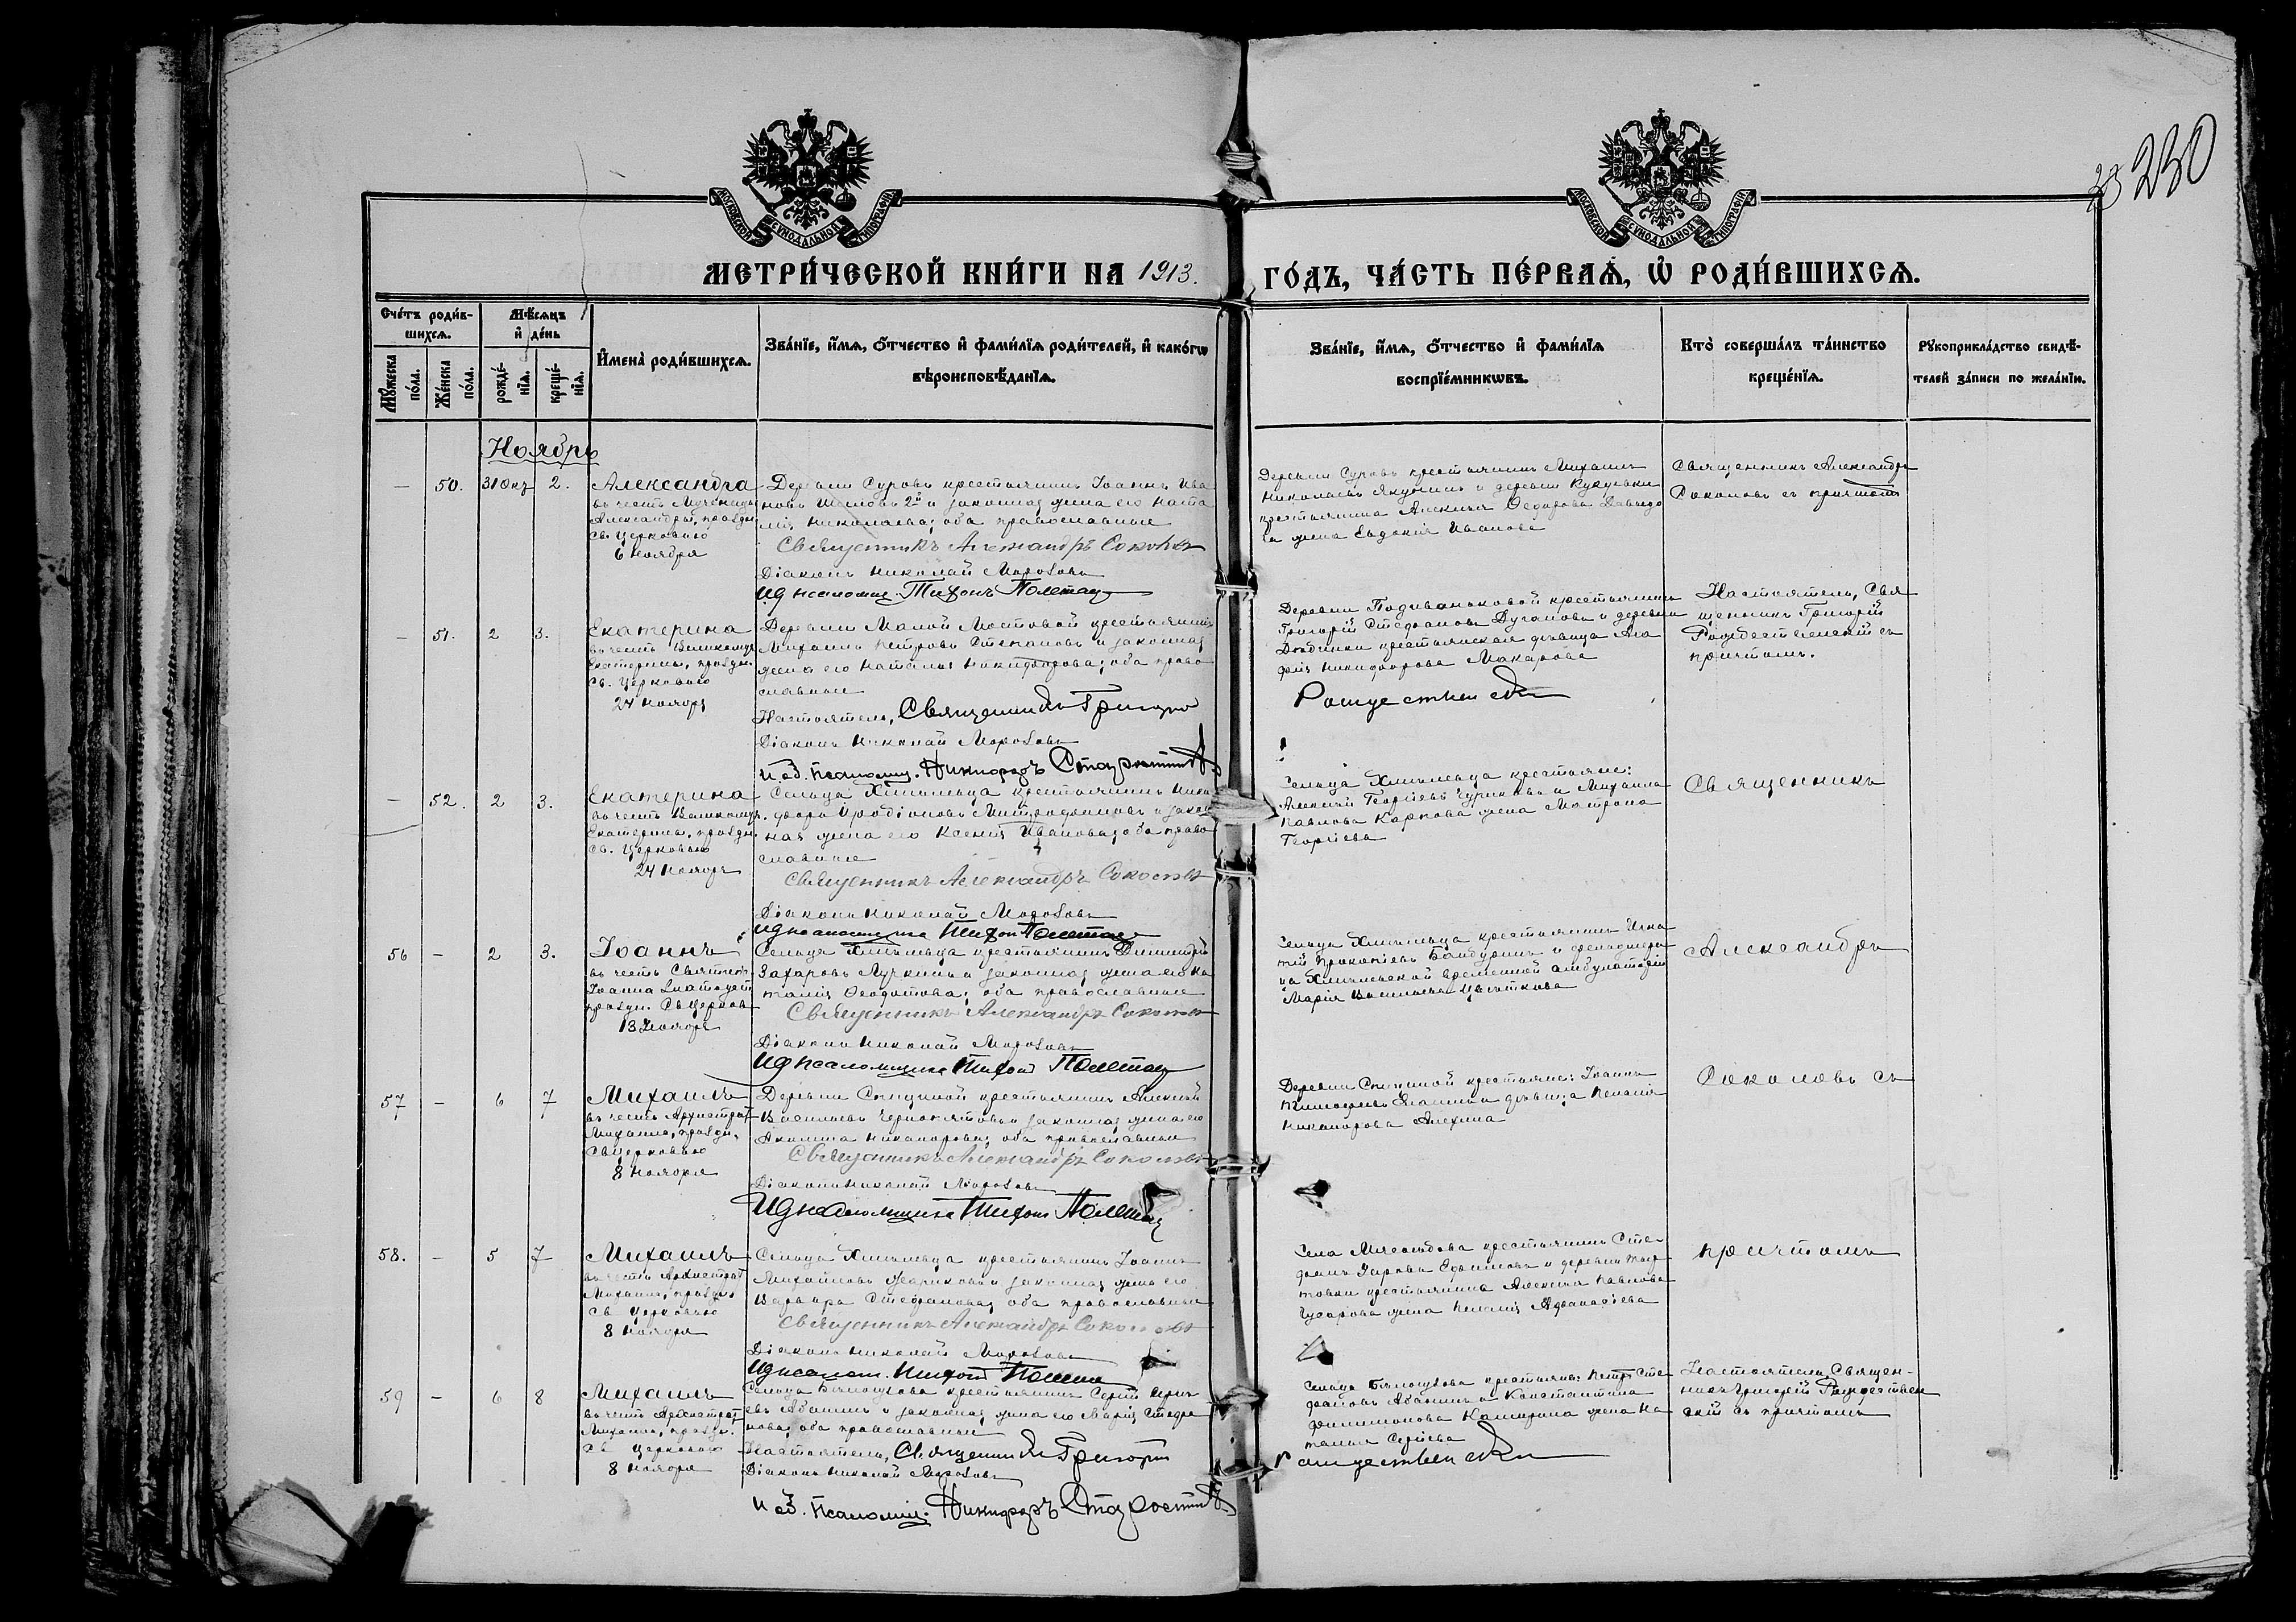 МОСКОВСКОЙ СѴНОДАЛЬНОЙ ТИПОГРАФІИ.
МОСКОВСКОЙ СѴНОДАЛЬНОЙ ТИПОГРАФІИ.
230
МЕТРИ́ЧЕСКОЙ КНИ́ГИ НА 1913. ГО́ДЪ, ЧА́СТЬ ПЕ́РВАѦ, Ѡ РОДИ́ВШИХСѦ.
Сче́тъ роди́в-
шихсѧ.
Мꙋ́жеска по́ла.
Же́нска по́ла.
Мѣ́сѧцъ
и҆ де́нь
рожде́-
нїѧ.
креще́-
нїѧ.
И҆мена̀ роди́вшихсѧ.
Зва́нїе, и҆́мѧ, ѻ҆́тчество и҆ фами́лїѧ роди́телей, и҆ како́гѡ
вѣроисповѣ́данїѧ.
Зва́нїе, и҆́мѧ, ѻ҆́тчество и҆ фами́лїѧ
воспрїе́мникѡвъ.
Кто̀ соверша́лъ та́инство
креще́нїѧ.
Рꙋкоприкла́дство свидѣ́-
телей за́писи по жела́нїю.
Ноябрь
— 50. 31 Окт 2. Александра
въ честь Мученицы
Александры, праздн.
Св. Церковью
6 ноября
Деревни Сурова крестьянинъ Іоаннъ Ива
новъ 2й и законная жена его Ната
лія Николаева; оба православные
Священникъ Александръ Соколовъ
Діаконъ Николай Морозовъ
И д псаломщ. Тихонъ
Деревни Сурова крестьянинъ Михаилъ
Николаевъ Якунинъ и деревни
крестьянина Алексѣя Ѳедорова Давыдо
ва жена Евдокія Иванова
Священникъ Александръ
Соколовъ съ причтомъ
— 51. 2 3. Екатерина
въ честь Великомуч.
Екатерины, праздн.
Св. Церковью
24 ноября
Деревни Малой Мостовой крестьянинъ
Михаилъ Петровъ Степановъ и законная
жена его Наталья Никифорова; оба право
славные
Настоятель, Священникъ Григорій
Діаконъ Николай Морозовъ
И. об. псаломщ. Никифоръ Старостинъ
Деревни Подиваньковой крестьянинъ
Григорій Стефановъ и деревни
крестьянская дѣвица Ага
фія Никифорова Макарова
Рождественскій
Настоятель, Свя
щенникъ Григорій
Рождественскій съ
причтомъ.
— 52. 2 3. Екатерина
въ честь Великомуч.
Екатерины, праздн.
Св. Церковью
24 ноября
Сельца Хмѣльевца крестьянинъ Ники
форъ Иродіоновъ Митрофановъ и закон
ная жена его Ксенія Иванова; оба право
славные
Священникъ Александръ Соколовъ
Діаконъ Николай Морозовъ
И д псаломщика Тихонъ
Сельца Хмѣльевца крестьяне:
Алексѣй Георгіевъ Чуриковъ и Михаила
Павлова Карпова жена Матрона
Георгіева
Священникъ
56 — 2 3. Іоаннъ
въ честь Святит.
Іоанна Златоуст
праздн. Св Церков
13 Ноября
Сельца Хмѣльевца крестьянинъ Димитрій
Захаровъ Лучкинъ и законная жена его На
талія Ѳеодотова; оба православные
Священникъ Александръ Соколовъ
Діаконъ Николай Морозовъ
И д псаломщика Тихонъ
Сельца Хмѣльевца крестьянинъ Игна
тій Прокопіевъ и фельдшери
ца Хмѣльевской временной амбулаторіи
Марія Васильева Цвѣткова
Александръ
57 — 6 7 Михаилъ
въ честь Архистрат
Михаила, праздн.
Св Церковью
8 ноября
Деревни крестьянинъ Алексѣй
Васильевъ Чернопятовъ и законная жена его
Акилина Никанорова; оба православные
Священникъ Александръ Соколовъ
Діаконъ Николай Морозовъ
И д псаломщика Тихонъ
Деревни крестьяне: Іоаннъ
и дѣвица Пелагія
Никанорова Алехина
Соколовъ съ
58. — 5 7 Михаилъ
въ честь Архистрат
Михаила, праздн
Св Церковью
8 ноября
Сельца Хмѣльевца крестьянинъ Іоаннъ
Михаиловъ и законная жена его
Варвара Стефанова; оба православные
Священникъ Александръ Соколовъ
Діаконъ Николай Морозовъ
И д псалом. Тихонъ
Села Мясоѣдова крестьянинъ Сте-
фанъ и деревни
крестьянина Алексѣя Павлова
Гусарова жена Пелагія Аѳанасіева
причтомъ
59 — 6 8 Михаилъ
въ честь Архистрат
Михаила, праздн.
Св Церковью
8 ноября
Сельца Бѣлоухова крестьянинъ Сергій Серге
евъ Абашинъ и законная жена его Марія Стефа
нова; оба православные
Настоятель, Священникъ Григорій
Діаконъ Николай Морозовъ
И об. псаломщ. Никифоръ Старостинъ
Сельца Бѣлоухова крестьяне: Петръ Сте
фановъ Абашинъ и Константина
Филимонова жена На
талія Сергіева
Рождественскій
Настоятель, Священ-
никъ Григорій Рождествен
скій съ причтомъ